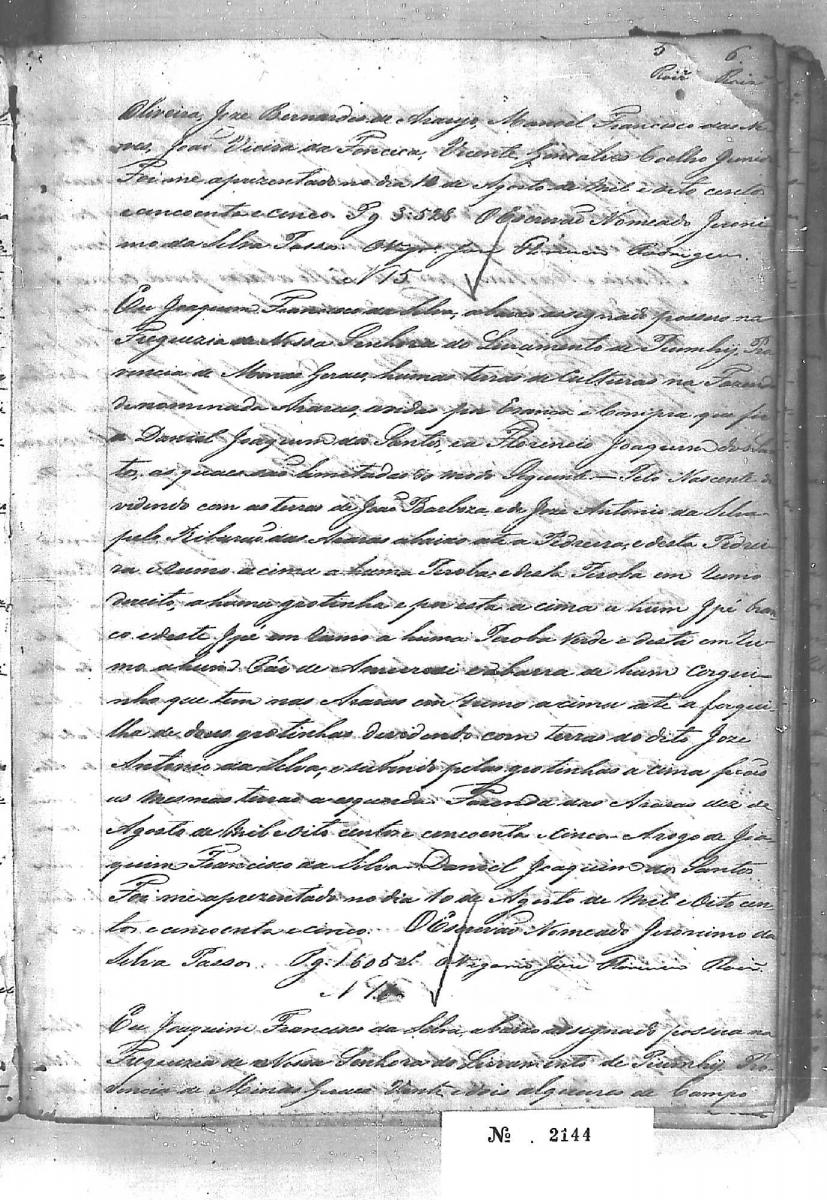 5 6
Roiz Roiz
Oliveira, Joze Bernardes de Araujo, Manoel Francisco das Ne-
ves, João Vieira da Fonceca, Vicente Gonsalves Coelho Junior
Foi me aprezentado no dia 10 de Agosto de Mil e oito centos
e cincoenta e cinco. Pg 3:528 O Escrivão Nomeado Jeroni-
mo da Silva Tasso. O Vigro José Florencio Rodrigues.
N 15
Eu Joaquim Francisco da Silva, abaixo assignado possuo na
Freguezia de Nossa Senhora do Livramento de Piumhy, Pro-
vincia de Minas Geraes, humas terras de Culturas na Fazenda
denominada Araras, avidas por Erança e Compra que fiz
a Daniel Joaquim dos Santos, ea Florencio Joaquim dos San-
tos, as quaes são limitadas do modo Seguinte — Pelo Nascente di-
vidindo com as terras de João Barboza, e de Joze Antonio da Silva
pelo Ribarão das Araras abaixo até a Pedreira, e desta Pedrei-
ra e Rumo acima a huma Peroba, e desta Peroba em Rumo
direito, a huma grotinha e por esta a cima a hum Ipé bran-
co, e deste Ipé em Rumo a huma Peroba verde e desta em Ru-
mo a hum Páo de e abarra de hum corgui-
nho que tem nas Araras em Rumo acima até a forqui-
lha de duas grotinhas dividindo com terras do dito Joze
Antonio da Silva, e subindo pelas grotinhas a cima ficão
as mesmas terras a esquerda. Fazenda das Araras dez de
Agosto de Mil e oito centos e cincoenta e cinco. Arogo de Joa-
quim Francisco da Silva. Daniel Joaquim dos Santos
Foi me aprezentado no dia 10 de Agosto de Mil e Oito cen-
tos e cincoenta e cinco. O Escrivão Nomeado Jeronimo da
Silva Tasso. Pg. 1605 O Vigario José Florencio Roiz
N
Eu Joaquim Francisco da Silva, abaixo assignado possuo na
Freguezia de Nossa Senhora do Livramento de Piumhy Pro-
vincia de Minas Geraes Vinte e dois alqueires de Campo
Nº . 2144